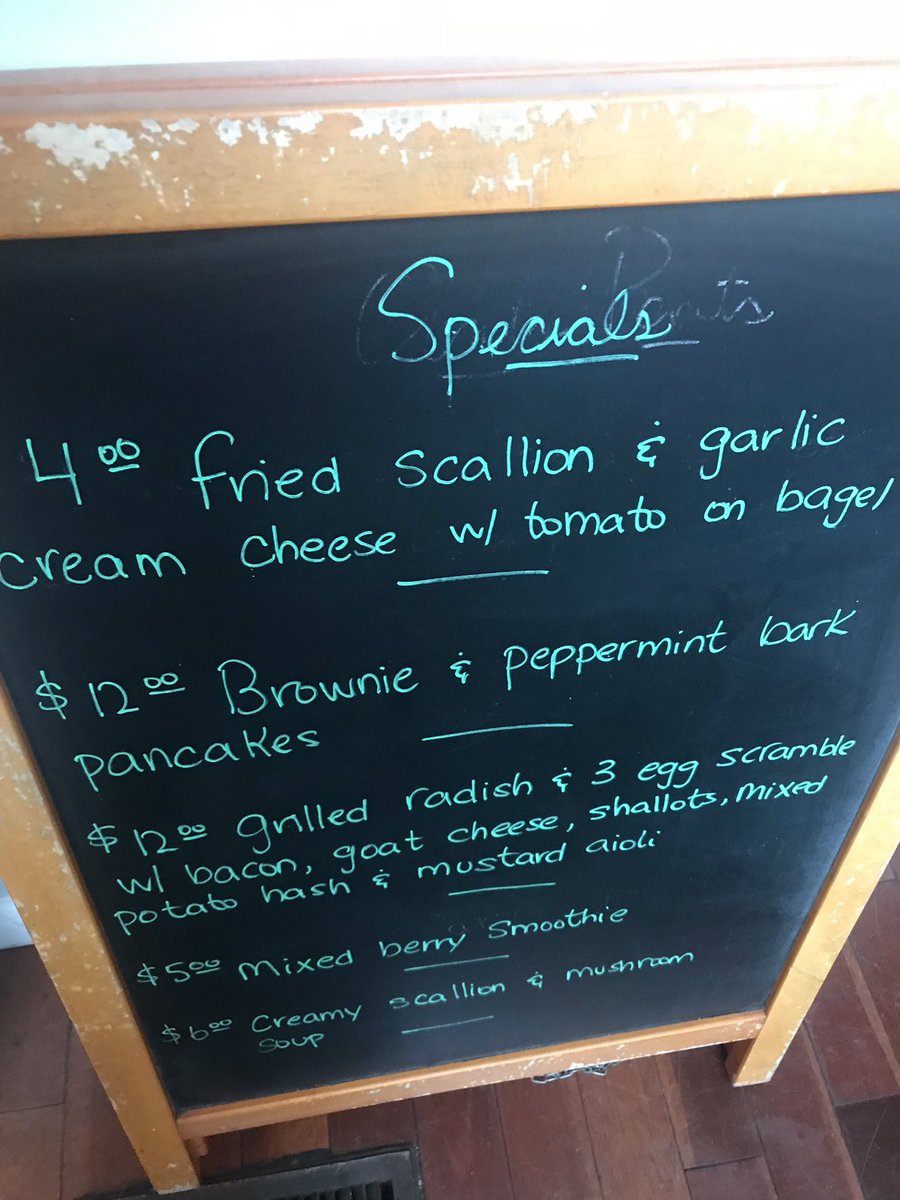 Specials
4.00 fried scallion & garlic
cream cheese w/ tomato on bagel
$12.00 Brownie & peppermint bark
pancakes
$12.00 grilled radish & 3 egg scramble
w/ bacon, goat cheese, shallots, mixed
potato hash & mustard aioli
$5.00 mixed berry smoothie
$6.00 creamy scallion & mushroom
soup